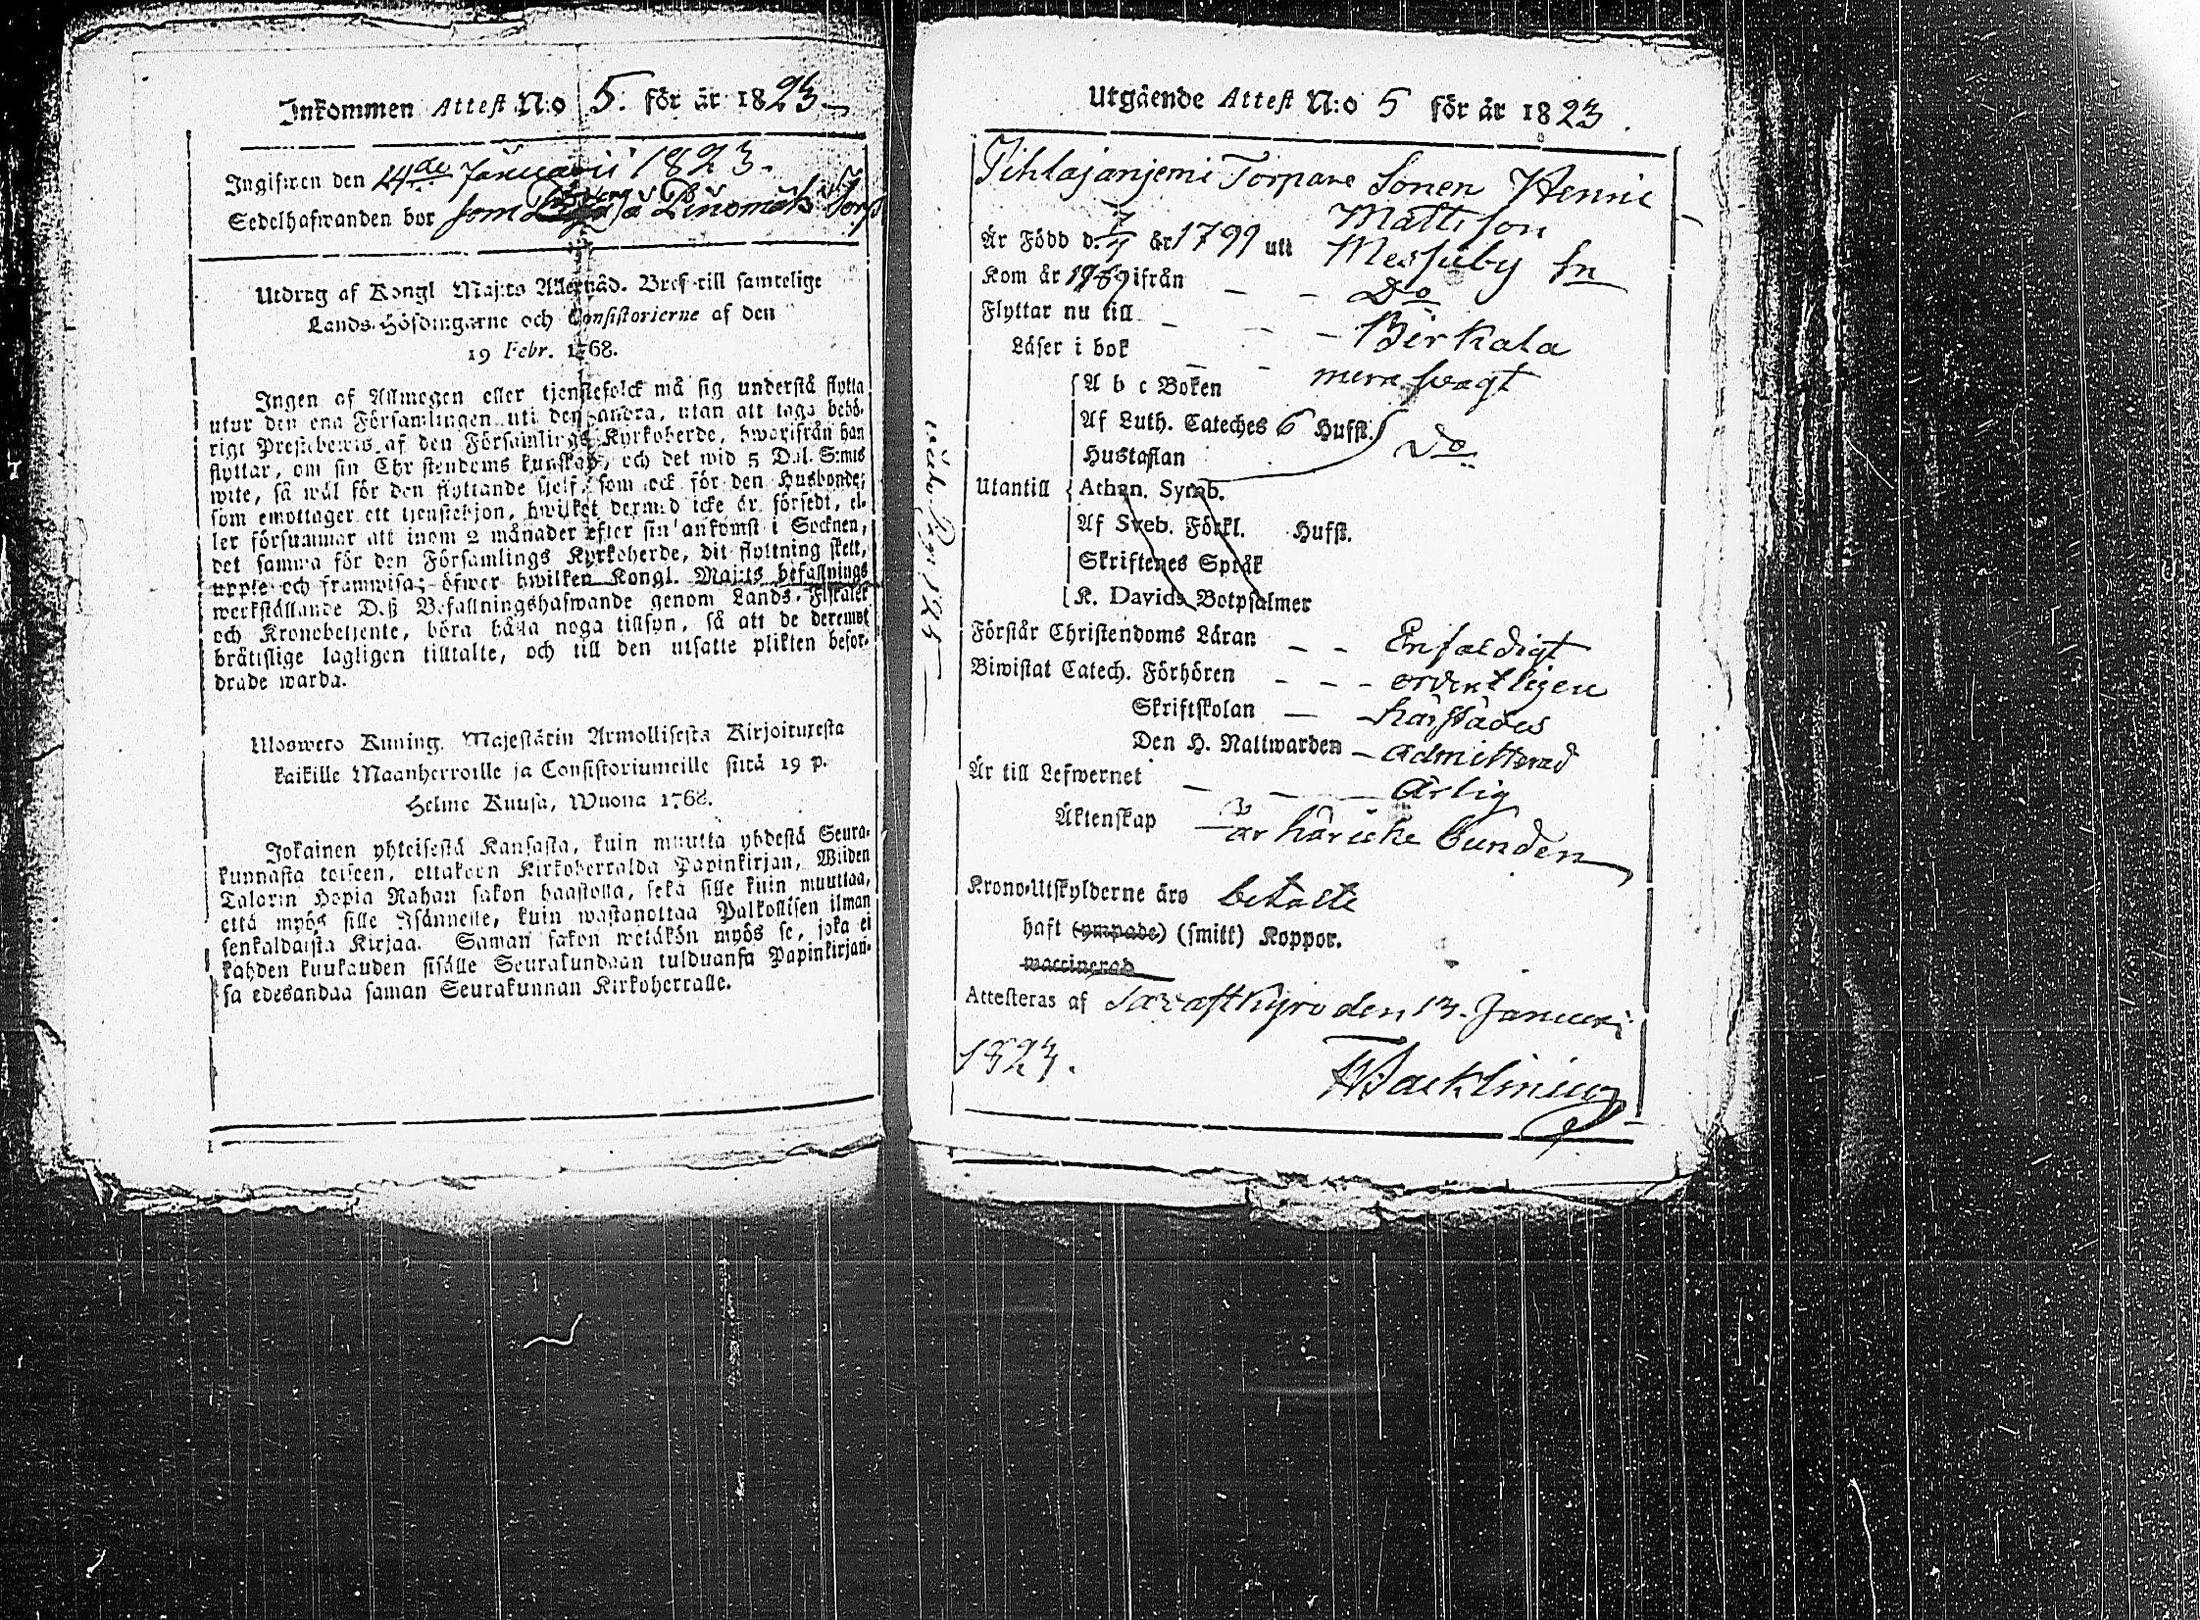 Inkommen Attest N:o 5. för år 1823
Ingifwen den 14de Januarii 1823.
Sedelhafwanden bor som på Torp
Utdrag af Kongl Maj:ts Allernåd. Bref till samtelige
Lands-Höfdingarne och Consistorierne af den
19 Febr. 1768.
Ingen af Allmogen eller tjenstefolck må sig understå flytta
utur den ena Församlingen uti den andra, utan att taga behö-
rigt Prestbewis af den Församlings Kyrkoherde, hwarifrån han
flyttar, om sin Christendoms kunskap, och det wid 5 Dal. S:mts
wite, så wäl för den flyttande sjelf, som ock för den Husbonde,
som emottager ett tjenstehjon, hwilket dermed icke är försedt, el-
ler försummar att inom 2 månader efter sin ankomst i Socknen,
det samma för den Församlings Kyrkoherde, dit flyttning skett,
upple och framwisa; öfwer hwilken Kongl. Maj:ts befallnings
werkställande Deß Befallningshafwande genom Lands-Fiskaler
och Kronobetjente, böra hålla noga tillsyn, så att de deremot
bråtislige lagligen tilltalte, och till den utsatte plikten befor-
drade warda.
Uloswero Kuning. Majestätin Armollisesta Kirjoituxesta
kaikille Maanherroille ja Consistoriumeille siitä 19 p.
Helme Kuusa, Wuona 1768.
Jokainen yhteisestä Kansasta, kuin muutta yhdestä Seura-
kunnasta toiseen, ottakoon Kirkoherralda Papinkirjan, Wiiden
Talarin Hopia Rahan sakon haastolla, sekä sille kuin muuttaa,
että myös sille Isännelle, kuin wastanottaa Palkollisen ilman
senkaldaista Kirjaa. Saman sakon wetäkön myös se, joka ei
kahden kuukauden sisälle Seurakundaan tulduansa Papinkirjan-
sa edesandaa saman Seurakunnan Kirkoherralle.
Utgående Attest N:o 5 för år 1823.
Pihlajanjemi Torpare Sonen Henric
Mattsson
Är Född d. 7/7 år 1799 uti Messuby Sn
Kom år ifrån - - Do
Flyttar nu till - - - Birkala
Läser i bok - - mera swagt
A b c Boken
Af Luth. Cateches 6 Hufst. Do
Hustaflan
Utantill Athan. Symb.
Af Sveb. Förkl. Hufst.
Skriftenes Språk
K. Davids Botpsalmer
Förstår Christendoms Läran - - Enfaldigt
Biwistat Catech. Förhören - - - ordentligen
Skriftskolan - härstädes
Den H. Nattwarden - admitterad
Är till Lefwernet - - - Ärlig
Äktenskap - är här icke bunden
Krono-Utskylderne äro betalte
haft (ympade) (smitt) Koppor.
waccinerad
Attesteras af Tavastkyro den 13. Januari
1823.